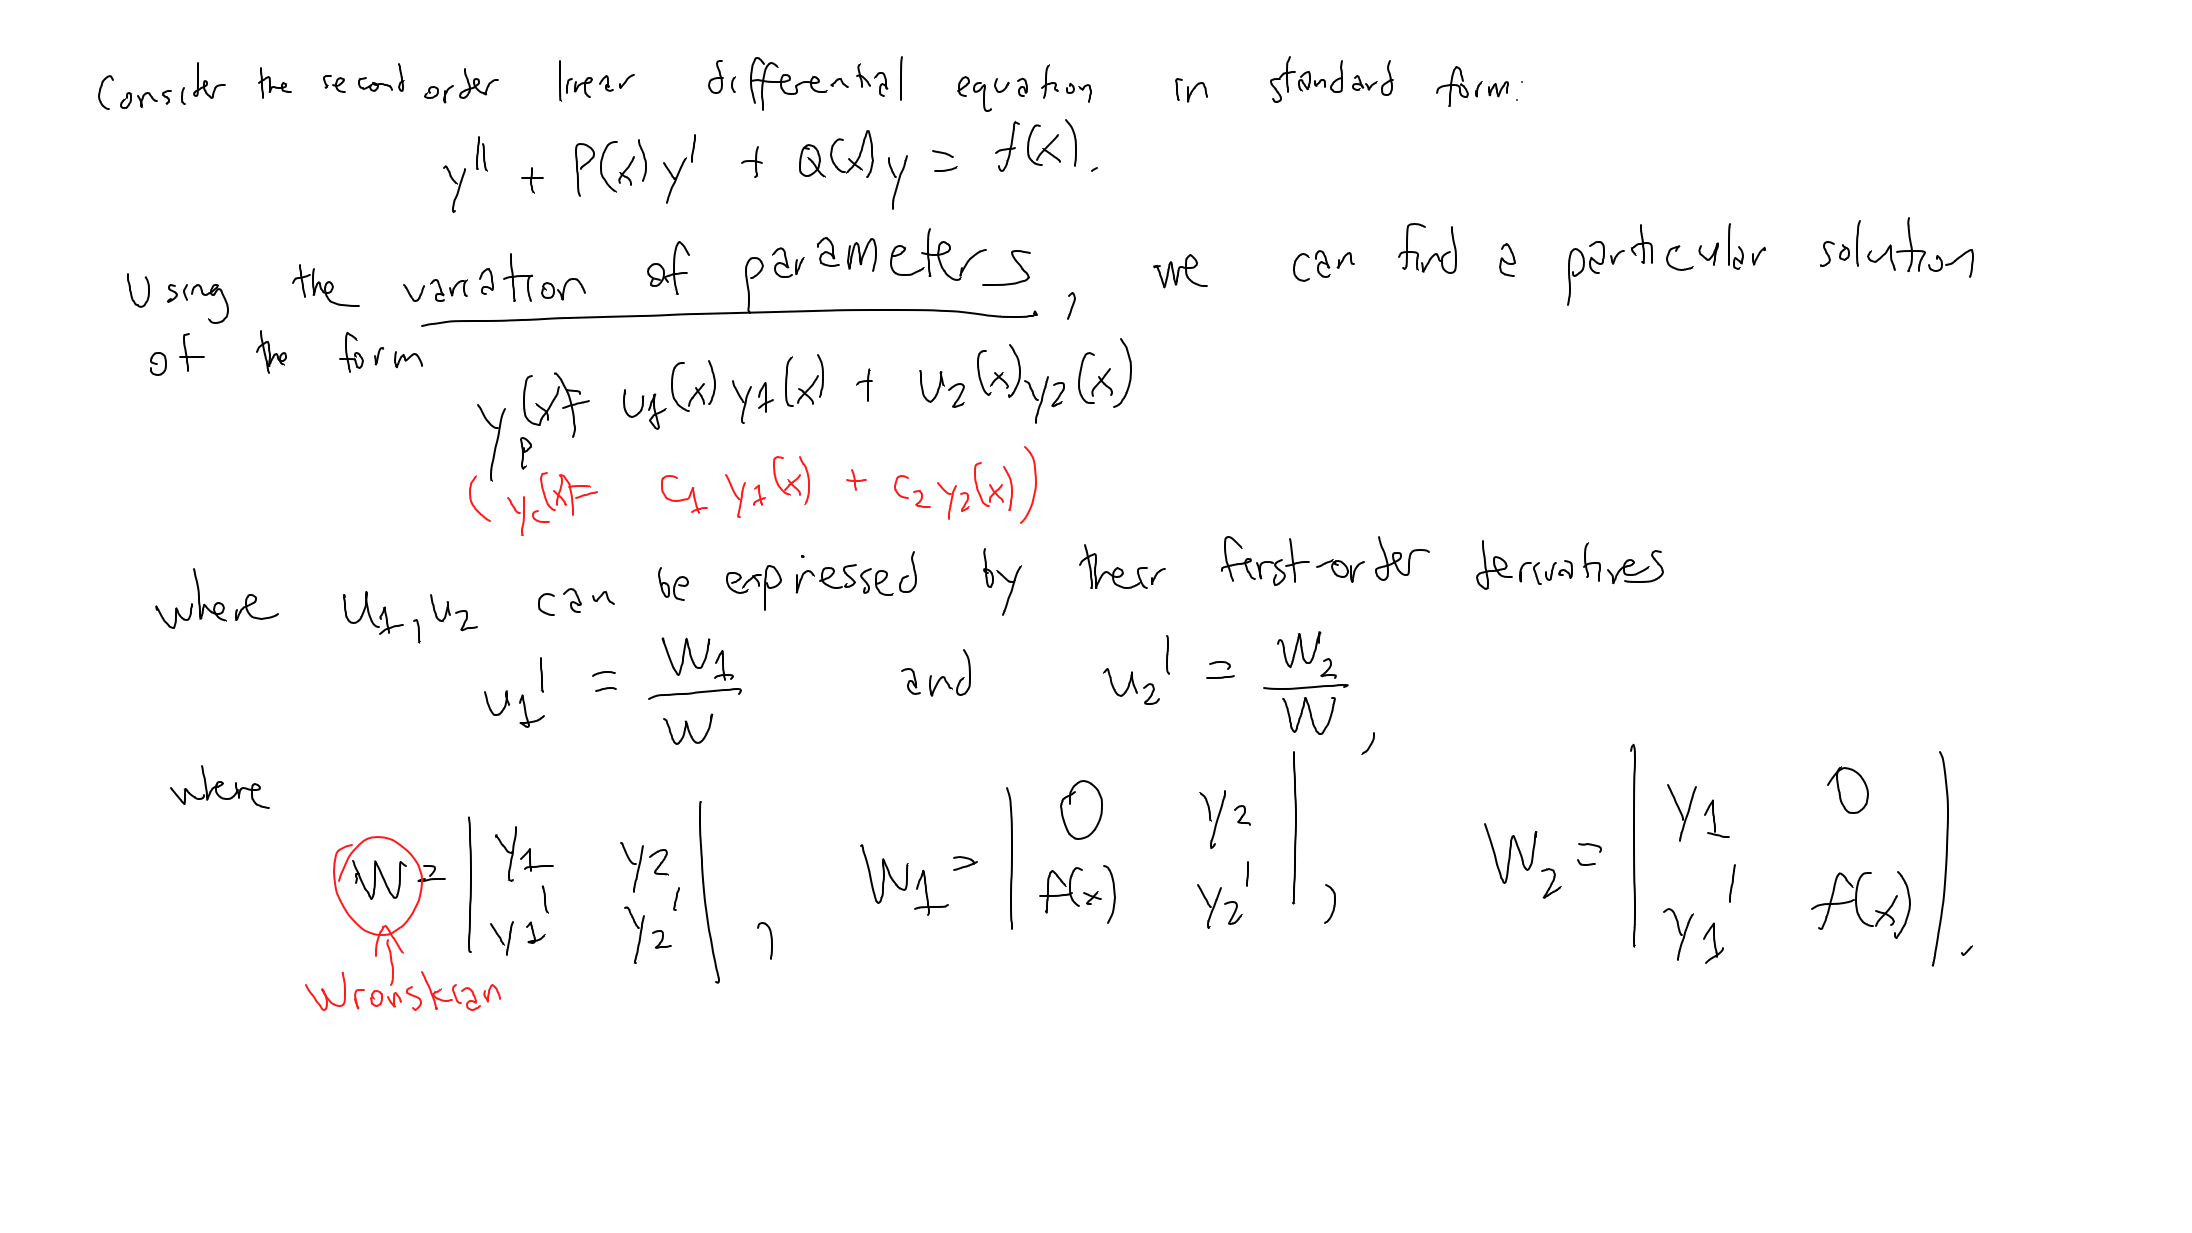 Consider the second order linear differential equation in standard form:
y'' + P(x)y' + Q(x)y = f(x).
Using the variation of parameters, we can find a particular solution
of the form
y_p(x) = u_1(x)y_1(x) + u_2(x)y_2(x)
(y_c(x) = c_1 y_1(x) + c_2 y_2(x))
where u_1, u_2 can be expressed by their first-order derivatives
u_1' = W_1/W and u_2' = W_2/W,
where
W = |y_1 y_2; y_1' y_2'|, W_1 = |0 y_2; f(x) y_2'|, W_2 = |y_1 0; y_1' f(x)|.
Wronskian